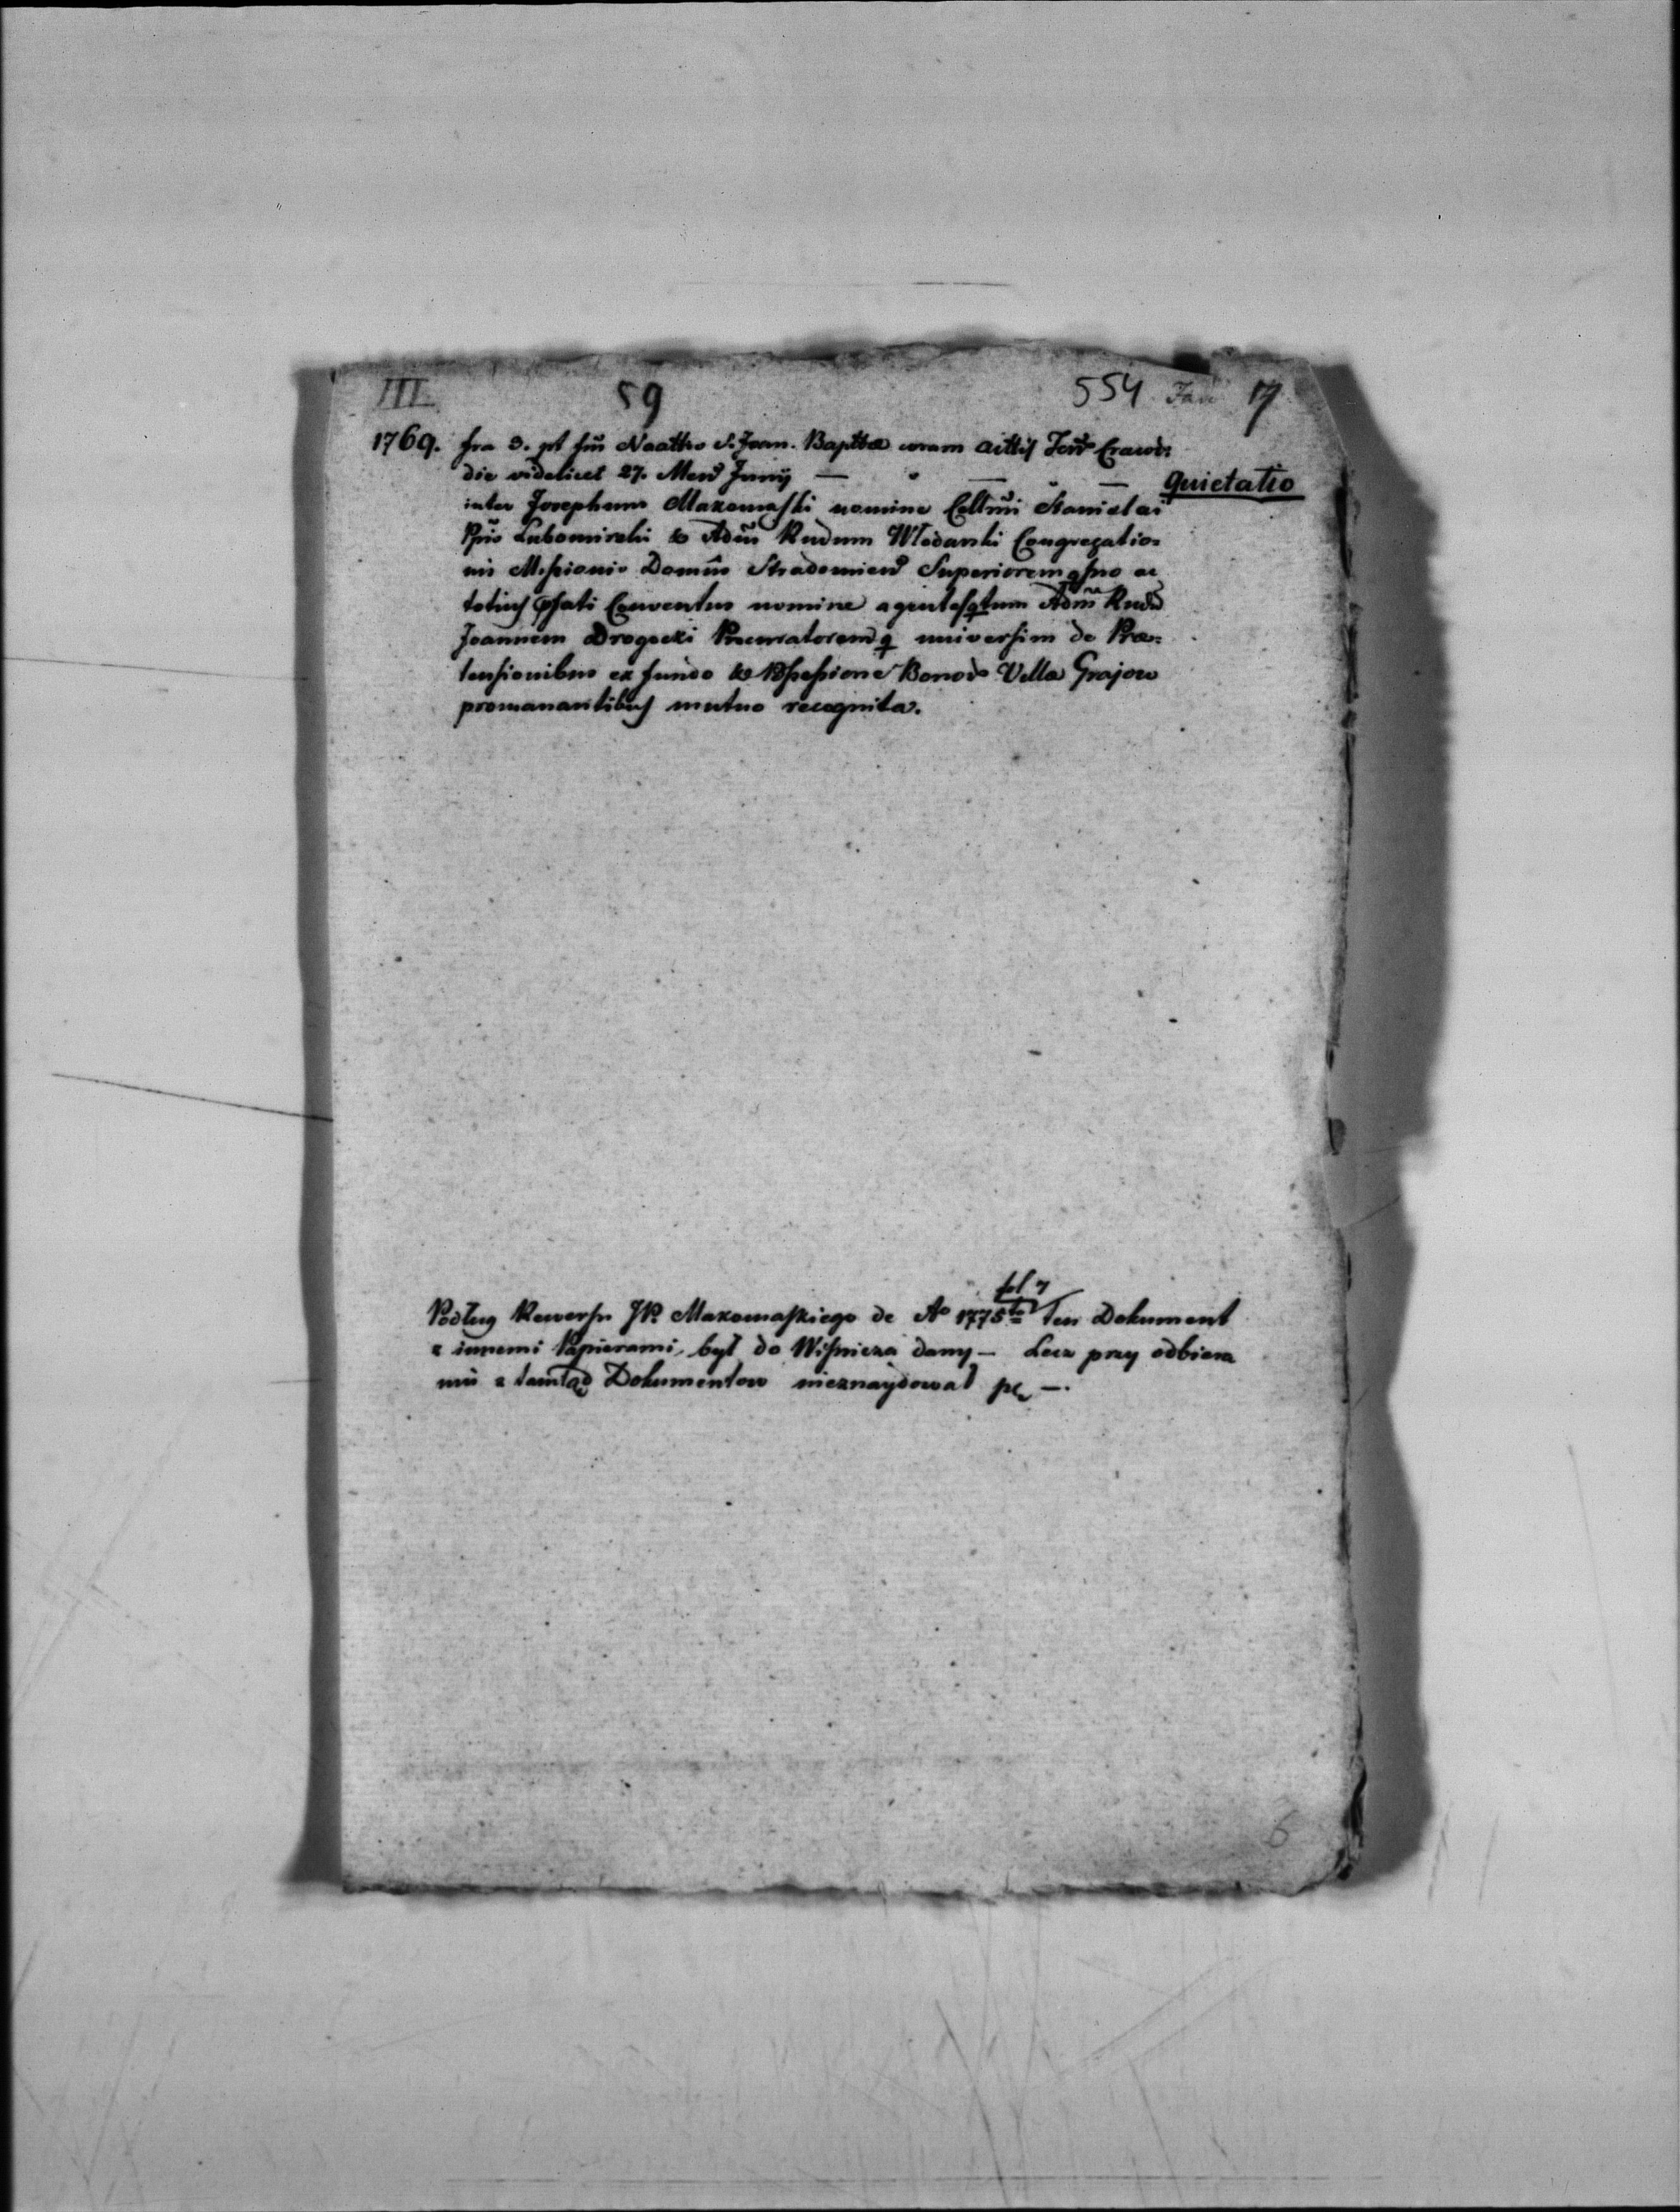 III. 59 554 17
1769. fra 3. pt fm̃ Naattis S. Joan. Baptæ coram Actis Terr̃ Cracov:
die videlicet 27. Mens̃ Junij — " — " — Quietatio
inter Josephum Makomaski nomine Celsm̃i Stanislai
Ppis Lubomirski & Adm̃ Rndum Wlodarski Congregatio=
nis Missionis Domûs Stradomiens̃ Superiorem suo ac
totius pfati Conventus nomine agentes tum Adm̃ Rndũ
Joannem Drogoszi Procuratoremq universim de Præ=
tensionibus ex fundo & Possessione Bonor̃ Villæ Grajow
promanantibus mutuo recognita.
fol 7
Podług Rewersu JP. Makomaskiego de Ao 1775to Ten Dokument
z innemi Papierami, był do Wisnicza dany — Lecz przy odbiera
niu z tamtąd Dokumentow nieznaydował się —.
6